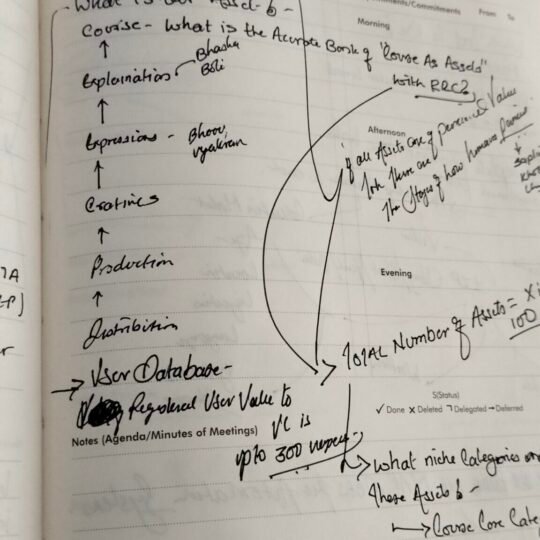 What is
Course - What is the Accurate Book of "Course As Assets"
with RRC?
Explaination
Bhasha
Boli
Expressions - Bhaav,
vyakran
Creatives
Production
Distribution
→ User Database -
Registered User Value to
VC is
upto 300 rupees
ments/Commitments From To
Morning
Afternoon
if all Assets are of perceived Value
Then There are
The Stages of how humans
Evening
TOTAL Number of Assets =
100
S(Status)
✓ Done ✗ Deleted Delegated → Deferred
Notes (Agenda/Minutes of Meetings)
→ What niche Categories are
These Assets
→ Course Core Cate